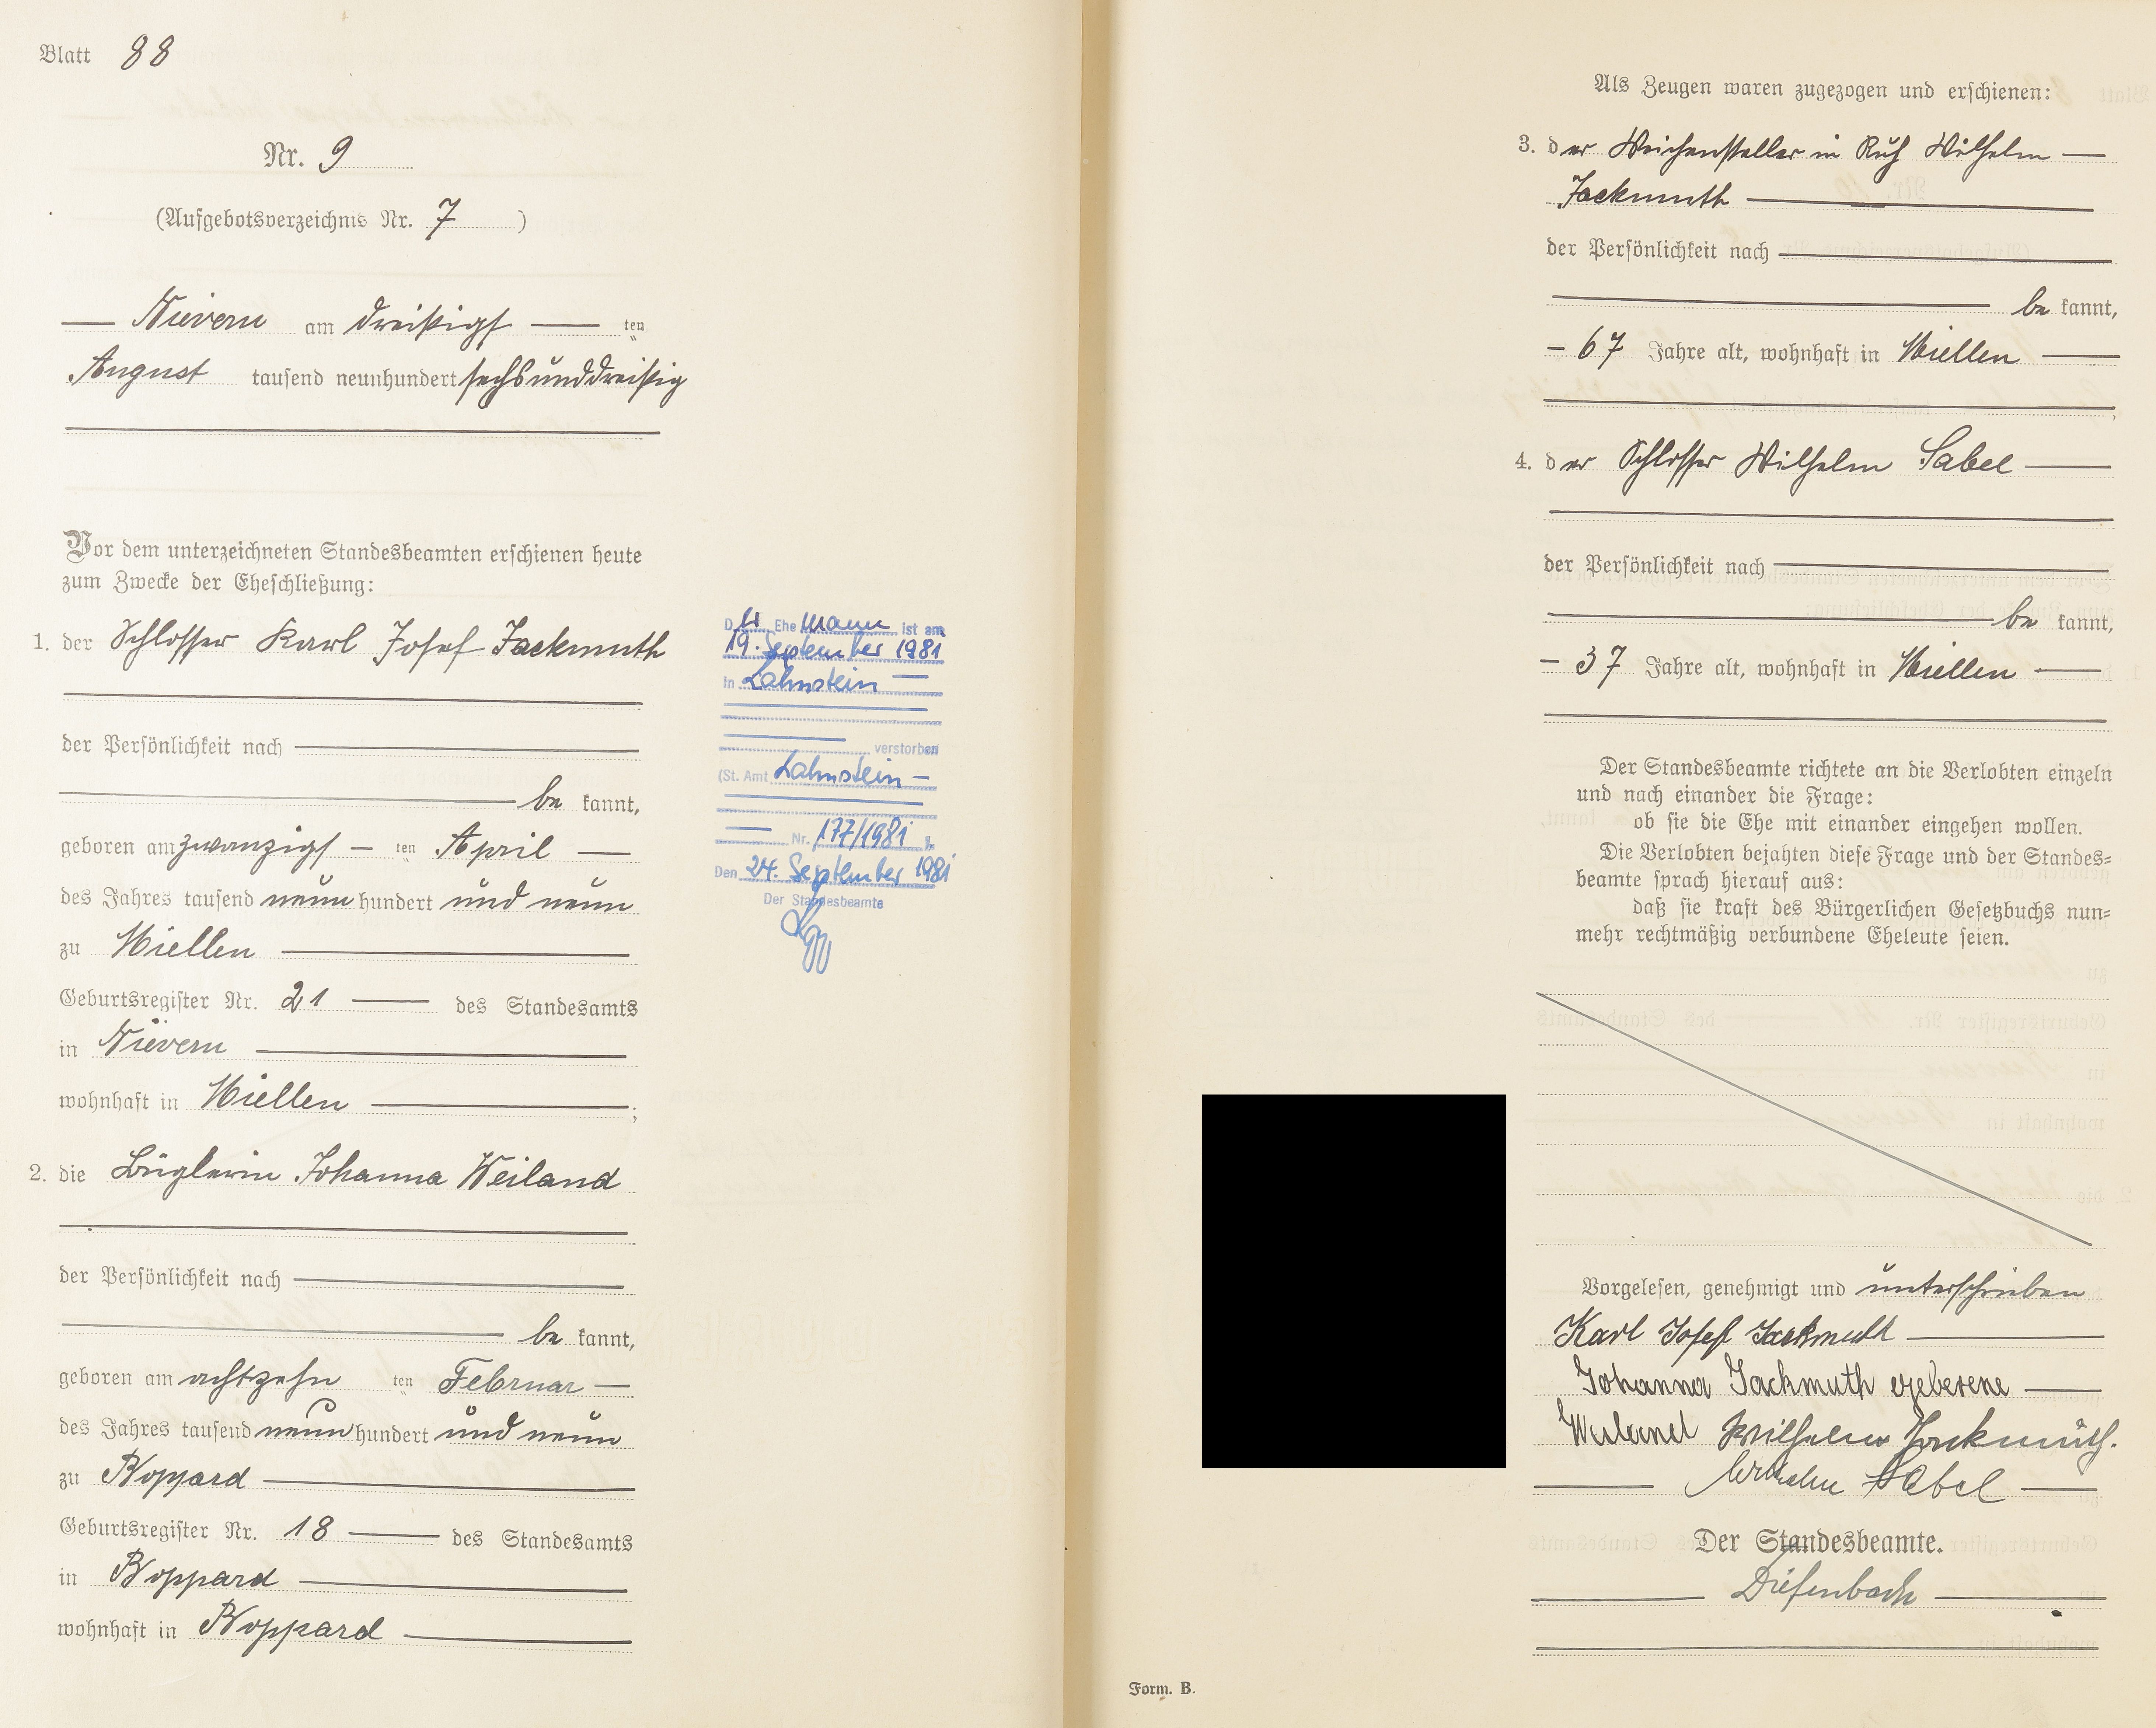 Blatt 88
Nr. 9
(Aufgebotsverzeichnis Nr. 7 )
Nievern am dreißigs ten
August tausend neunhundert sechsunddreißig
Vor dem unterzeichneten Standesbeamten erschienen heute
zum Zwecke der Eheschließung:
1. der Schlosser Karl Josef Jackmuth
der Persönlichkeit nach
be kannt,
geboren am zwanzigs ten April
des Jahres tausend neun hundert und neun
zu Miellen
Geburtsregister Nr. 21 des Standesamts
in Nievern
wohnhaft in Miellen ;
2. die Büglerin Johanna Weiland
der Persönlichkeit nach
be kannt,
geboren am achtzehn ten Februar
des Jahres tausend neun hundert und neun
zu Boppard
Geburtsregister Nr. 18 des Standesamts
in Boppard
wohnhaft in Boppard
Der Ehemann ist am
19. September 1981
in Lahnstein
verstorben
(St. Amt Lahnstein
Nr. 177/1981 ).
Den 24. September 1981
Der Standesbeamte
Als Zeugen waren zugezogen und erschienen:
3. der Weichensteller in Ruh Wilhelm
Jackmuth
der Persönlichkeit nach
be kannt,
67 Jahre alt, wohnhaft in Miellen
4. der Schlosser Wilhelm Sabel
der Persönlichkeit nach
be kannt,
37 Jahre alt, wohnhaft in Miellen
Der Standesbeamte richtete an die Verlobten einzeln
und nach einander die Frage:
ob sie die Ehe mit einander eingehen wollen.
Die Verlobten bejahten diese Frage und der Standes=
beamte sprach hierauf aus:
daß sie kraft des Bürgerlichen Gesetzbuchs nun=
mehr rechtmäßig verbundene Eheleute seien.
Vorgelesen, genehmigt und unterschrieben
Karl Josef Jackmuth
Johanna Jackmuth geborene
Weiland Wilhelm Jackmuth.
Wilhelm Sabel
Der Standesbeamte.
Diefenbach
Form. B.